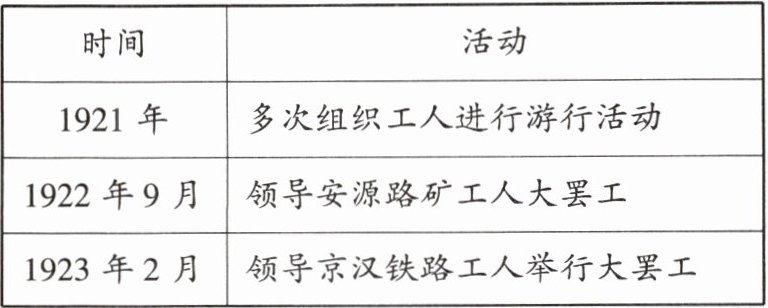 时间 活动
1921 年 多次组织工人进行游行活动
1922 年 9 月 领导安源路矿工人大罢工
1923 年 2 月 领导京汉铁路工人举行大罢工